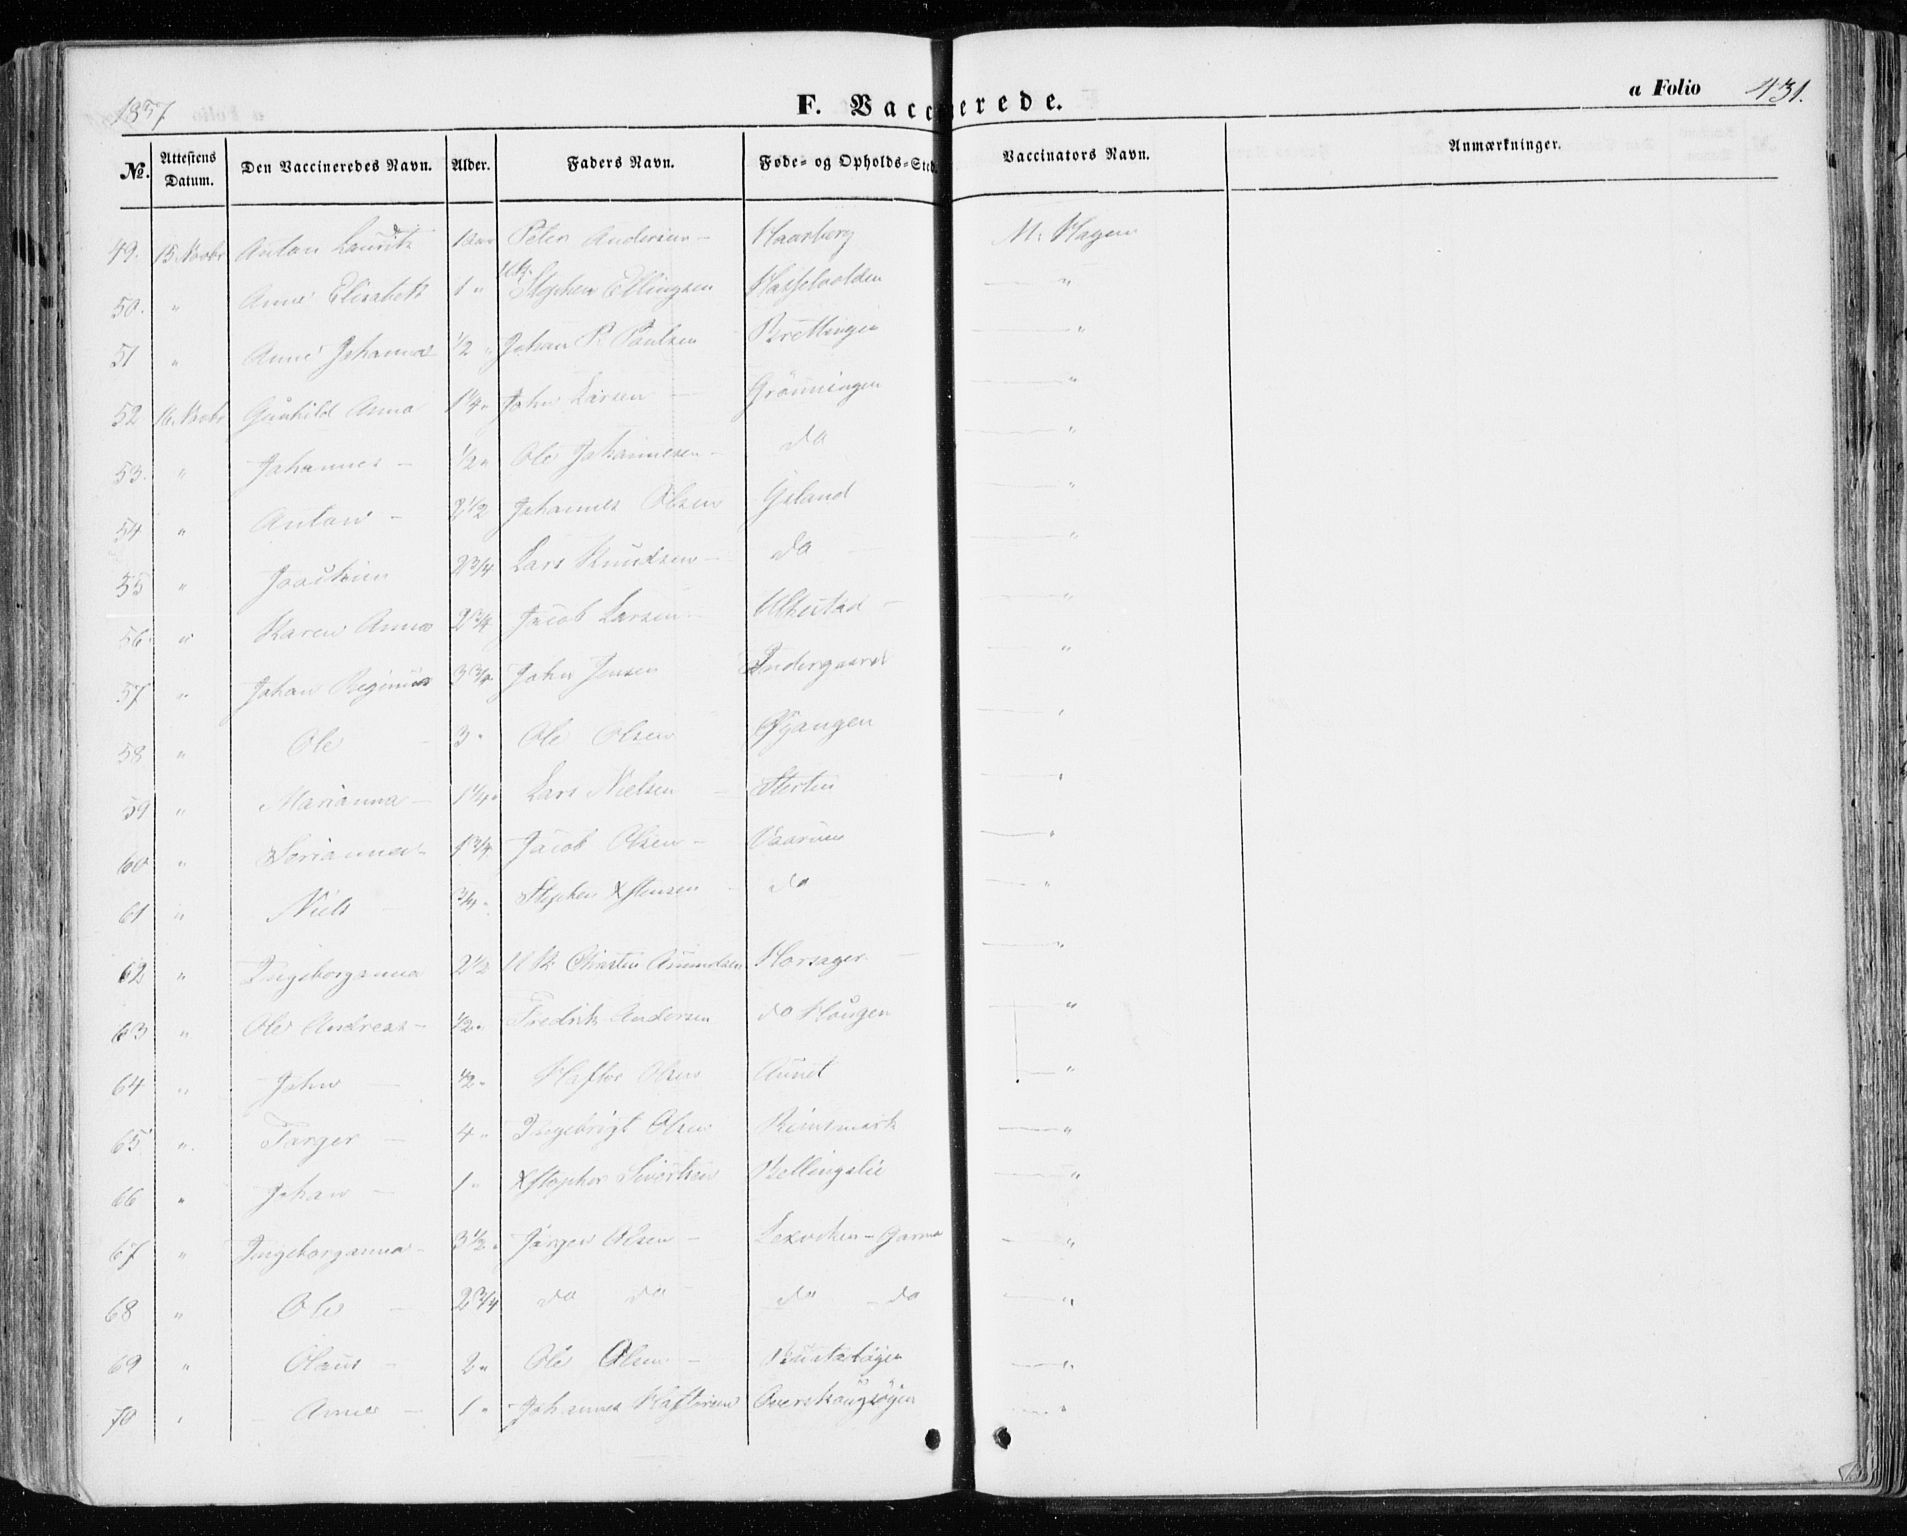 1857 F. Vaccinerede. a Folio 431.
№. Attestens Datum. Den Vaccineredes Navn. Alder. Faders Navn. Føde- og Opholds-Sted. Vaccinators Navn. Anmærkninger.
49. 15 Novbr Anton Lauritz 1 Aar Peter Andersen - Haarberg M. Hagen
50. " Anne Elisabeth 1 " Stephen Ellingsen Hasselvolden — "
51 " Anne Johanna ½ " Johan P. Paulsen Brettingen — "
52 16 Novbr Gunhild Anna 1¼ " John Larsen - Grönningen — "
53. " Johannes - ½ " Ole Johannesen - do — "
54 " Anton - 2½ Johannes Olsen Ysland — "
55 " Joachim 2¾ Lars Knudsen - do - — "
56 " Karen Anna 2¾ Jacob Larsen - — "
57 " Johan Reginus 3¾ John Jensen Indergaard — "
58 " Ole - 3 " Ole Olsen Gjangen — "
59 " Marianna - 1¼ " Lars Nielsen - Sterten — "
60 " Sorianna - 1¾ Jacob Olsen - Vaarum — "
61 " Niels - ¾ " Stephen Xstensen - do — "
62 " Ingeborganna 2½ Christen Horsager - — "
63 " Ole Andreas - ½ " Fredrik Andersen do Haugen — "
64 " John - ½ " Haftor Olsen Aunet — "
65 " Torger - 4 " Ingebrigt Olsen Reinsmark — "
66 " Johan - 1 " Xstopher Sivertsen — "
67 " Ingeborganna - 3½ " Jörgen Olsen - Lexviken - — "
68 " Ole - 2¾ do do - do - do — "
69 " Olaus - 2 " Ole Olsen - — "
70 " Anne - 1 " Johannes Haftorsen — "